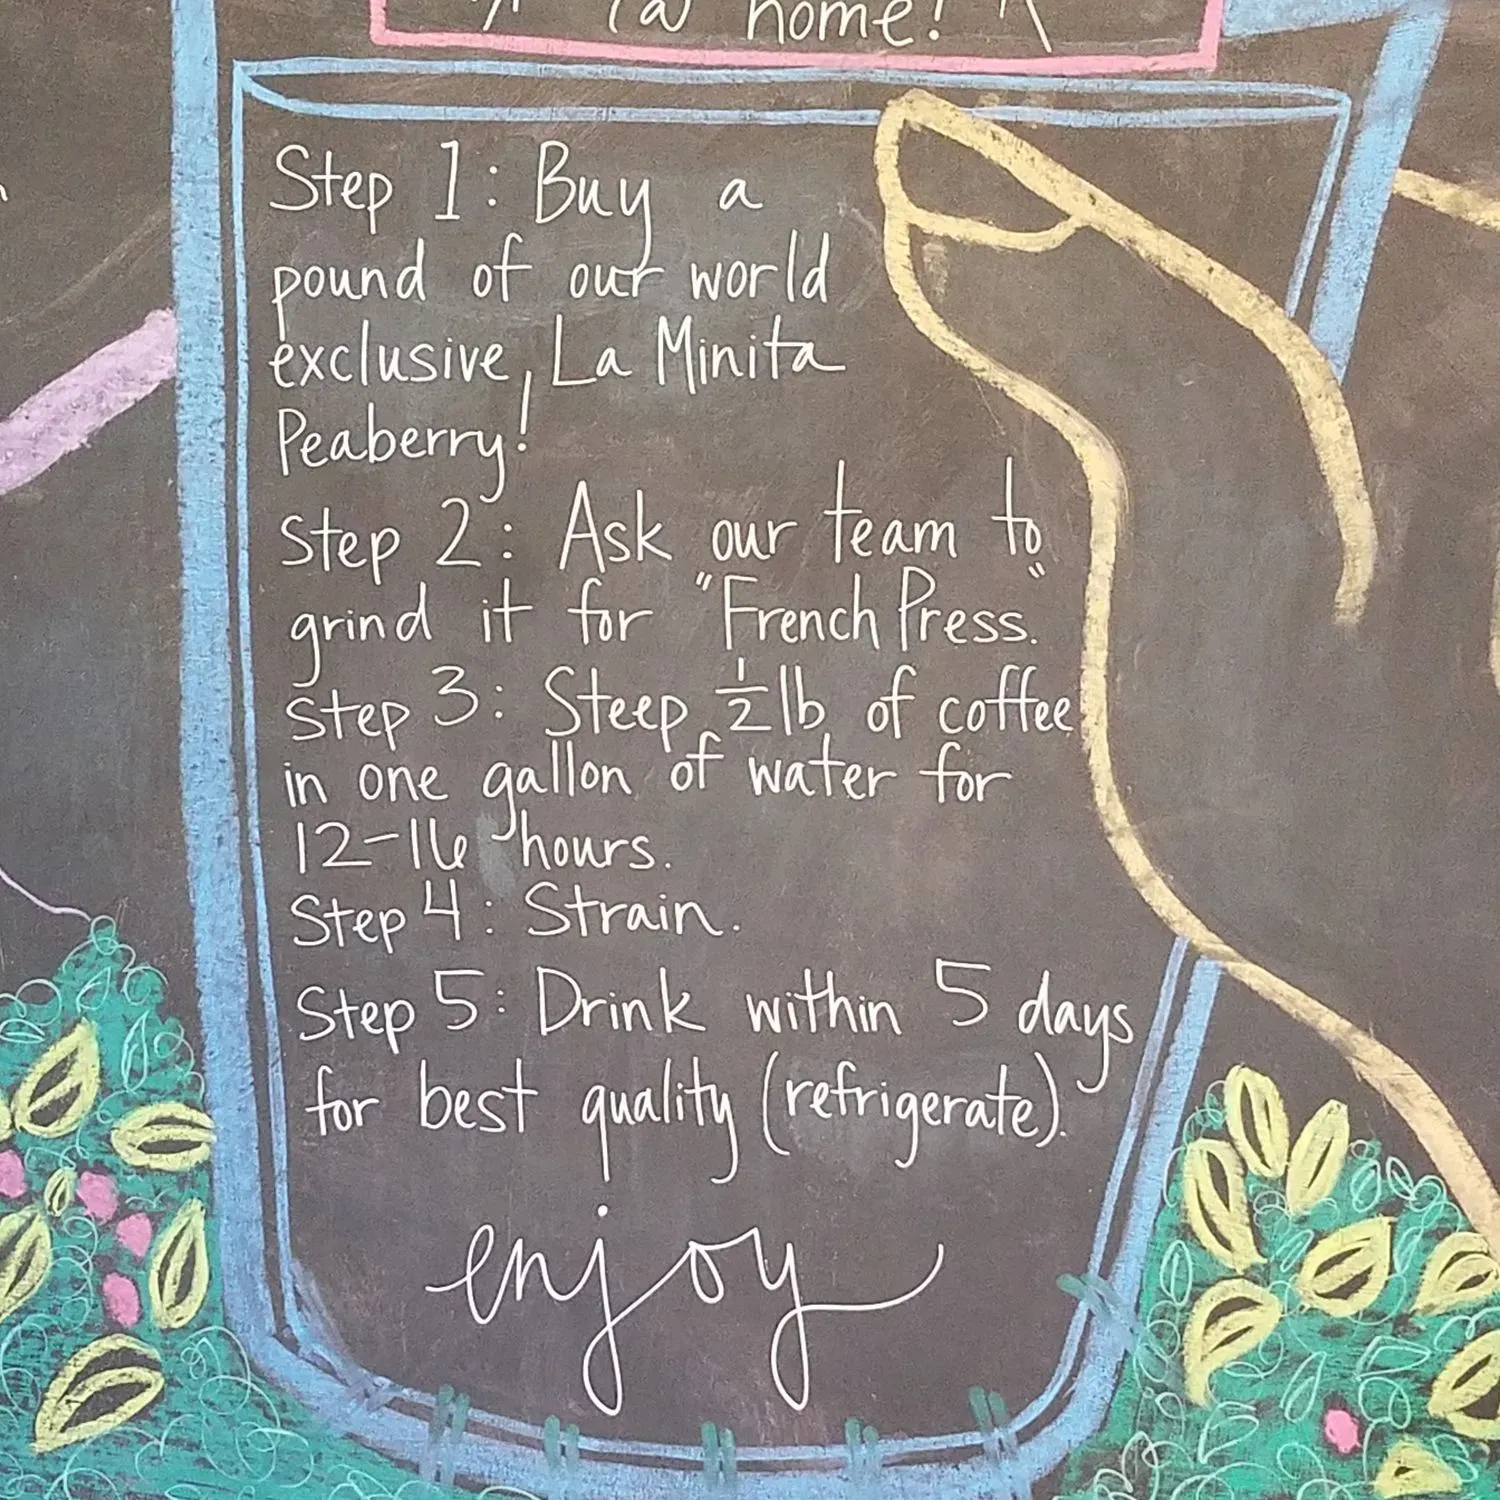 @ home!
Step 1: Buy a
pound of our world
exclusive, La Minita
Peaberry!
Step 2: Ask our team to
grind it for "French Press."
Step 3: Steep 1/2 lb of coffee
in one gallon of water for
12-16 hours.
Step 4: Strain.
Step 5: Drink within 5 days
for best quality (refrigerate).
enjoy